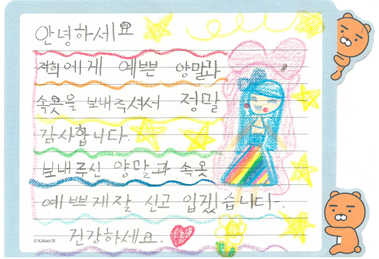 안녕하세요
저희에게 예쁜 양말과
속옷을 보내주셔서 정말
감사합니다.
보내주신 양말과 속옷
예쁘게잘 신고 입겠습니다.
건강하세요.
© Kakao IX